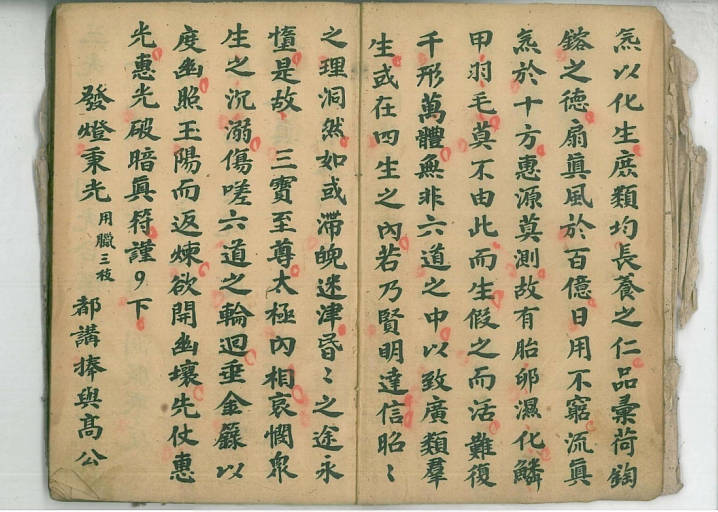 炁以化生庶類均長養之仁品彙荷鈞
鎔之德扇真風於百億日用不窮流真
炁於十方惠源莫測故有胎卵濕化鱗
甲羽毛莫不由此而生假之而活難復
千形萬體無非六道之中以致廣類羣
生或在四生之內若乃賢明達信昭〻
之理洞然如或滯魄迷津昏〻之途永
憻是故 三寶至尊太極內相哀憫衆
生之沉溺傷嗟六道之輪迴垂金籙以
度幽照玉陽而返煉欲開幽壤先仗惠
光惠光破暗真符謹9下
發燈秉光 用臘三枝 都講捧與高公